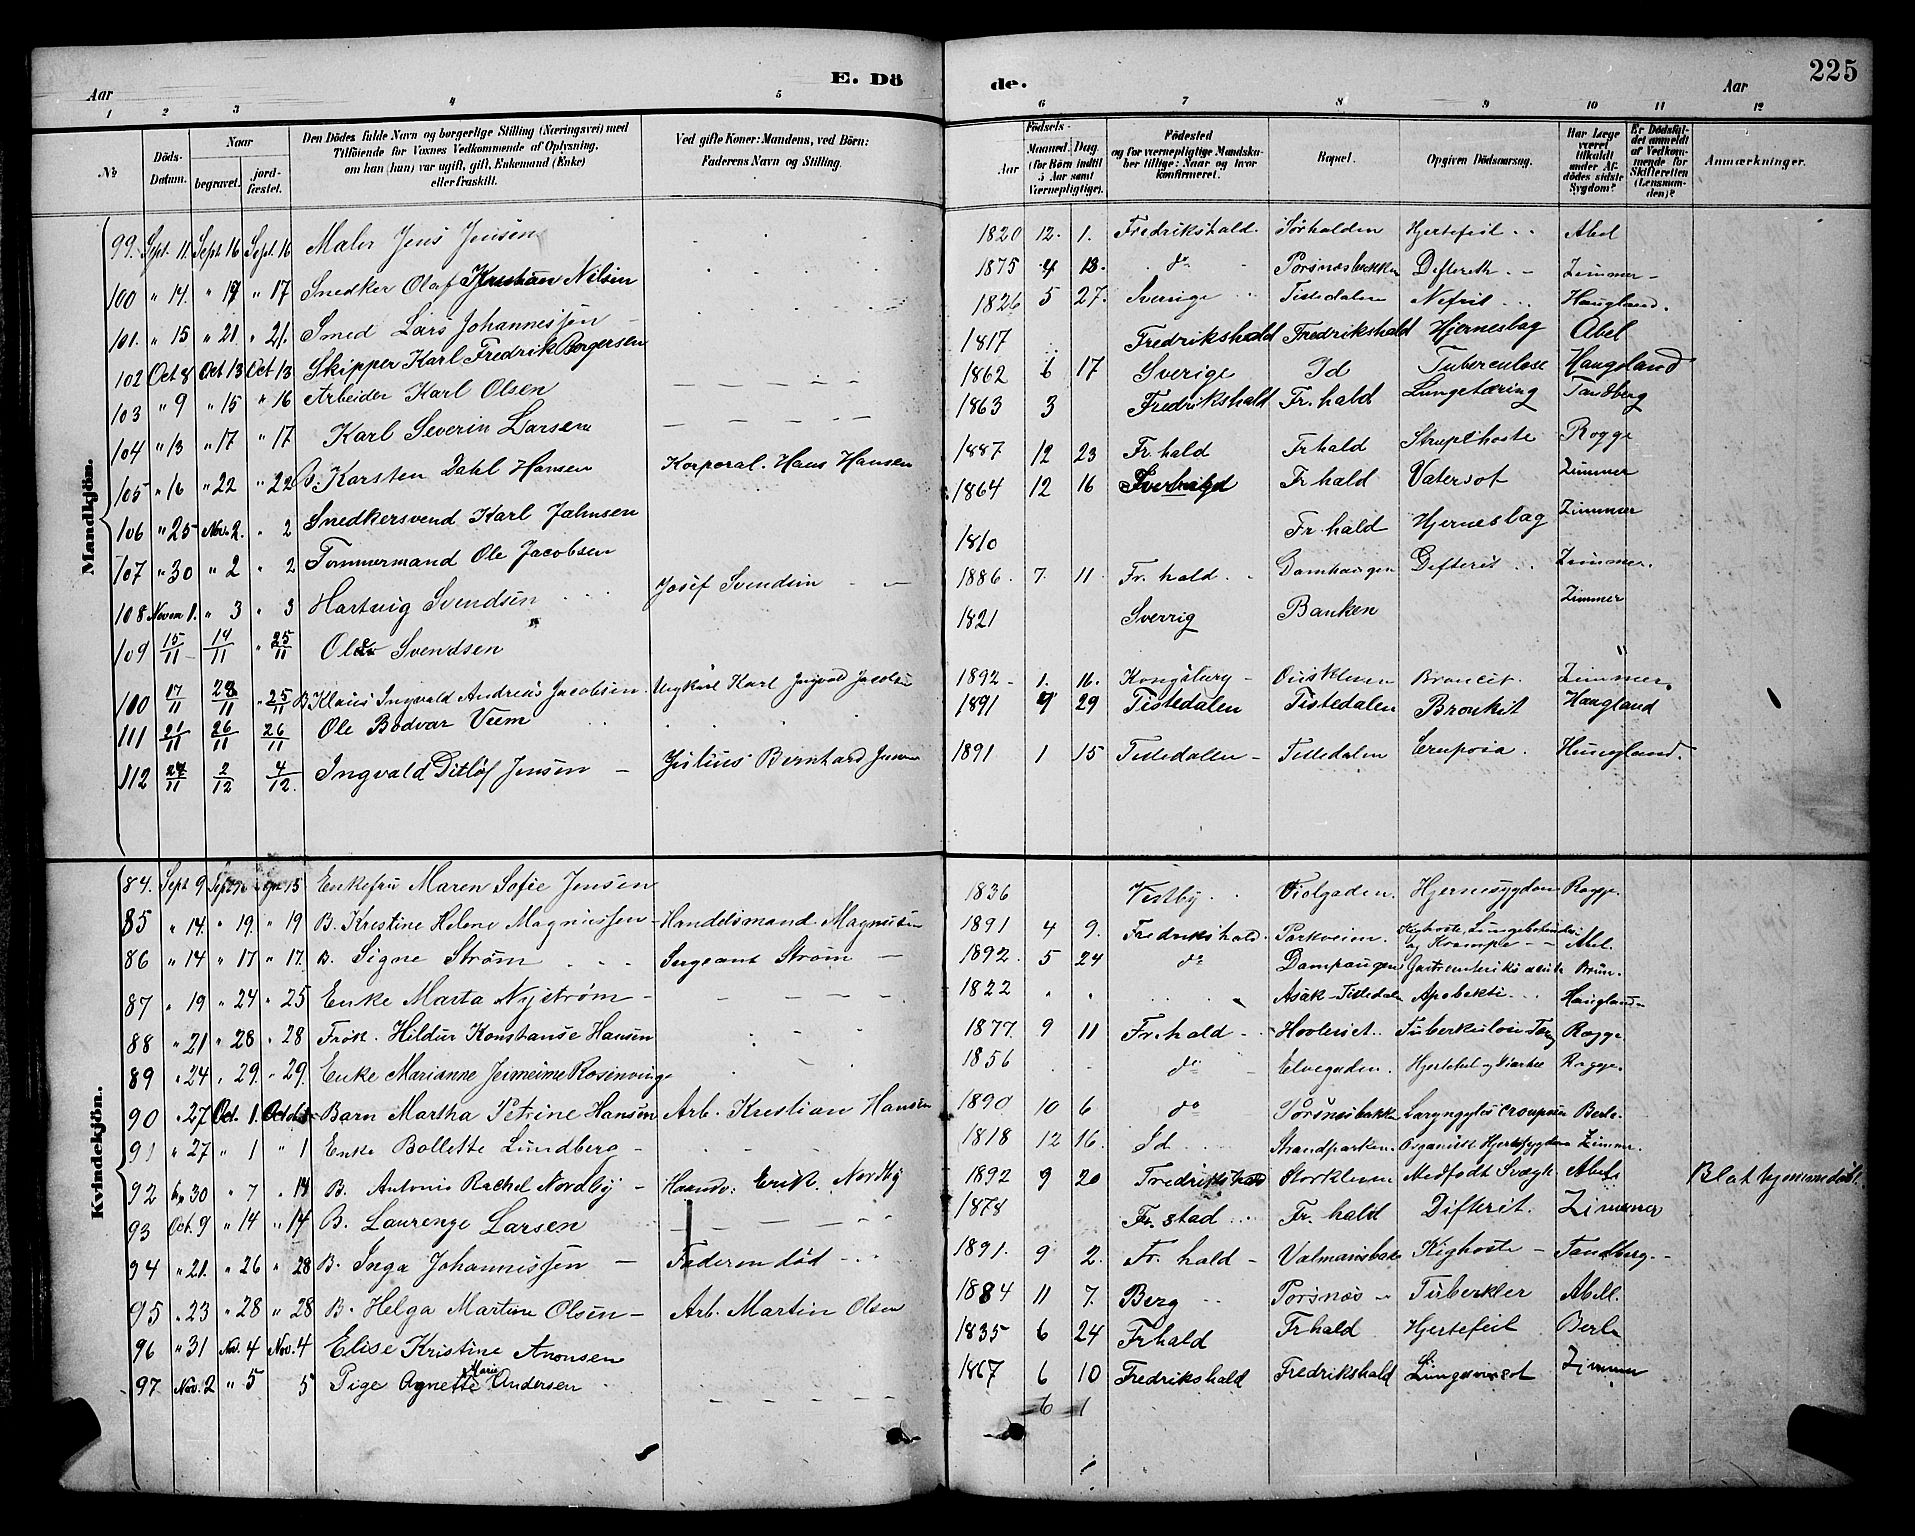 E. Dö de.
225
Aar
Aar
1 2 3 4 5 6 7 8 9 10 11 12
№
Döds-Datum.
Naar
begravet.
jord-fæstet.
Den Dödes fulde Navn og borgerlige Stilling (Næringsvei) med
Tilföiende for Voxnes Vedkommende af Oplysning,
om han (hun) var ugift, gift, Enkemand (Enke)
eller fraskilt.
Ved gifte Koner: Mandens, ved Börn:
Faderens Navn og Stilling.
Födsels-
Aar
Maaned. Dag.
(for Börn indtil
5 Aar samt
Værnepligtige).
Födested
og for værnepligtige Mandska-
ber tillige: Naar og hvor
konfirmeret.
Bopæl.
Opgiven Dödsaarsag.
Har Læge
været
tilkaldt
under Af-
dödes sidste
Sygdom?
Er Dödsfal-
det anmeldt
af Vedkom-
mende for
Skifteretten
(Lensman-
den)?
Anmærkninger.
Mandkjön.
99. Sept. 11. Sept 16 Sept. 16 Maler Jens Jensen 1820 12. 1. Fredrikshald. Sørhalden Hjertefeil Abel
100 " 14. " 17 " 17 Snedker Olaf Kristian Nilsen 1875 4 13. do Porsnæsbakken Difterit Zimmer
101. " 15 " 21 " 21. Smed Lars Johannessen 1826 5 27. Sverige Tistedalen Nefrit Haugland.
102 Oct 8 Oct 13 Oct 13 Skipper Karl Fredrik Borgersen 1817 Fredrikshald Fredrikshald Hjerneslag Abel
103 " 9 " 15 " 16 Arbeider Karl Olsen 1862 6 17 Sverige Id Tuberculose Haugland
104 " 13 " 17 " 17 Karl Severin Larsen 1863 3 Fredrikshald Fr. hald Lungetæring Tandberg
105 " 16 " 22 " 22 B. Karsten Dahl Hansen Korporal. Hans Hansen 1887 12 23 Fr. hald Fr hald Strupehoste Rogge
106 " 25 Nov. 2. " 2 Snedkersvend Karl Jahnsen 1864 12 16 Fr hald Vatersot Zimmer
107 " 30 " 2 " 2 Tømmermand Ole Jacobsen 1810 Fr. hald Hjerneslag Zimmer
108 Novem 1. " 3 " 3 Hartvig Svendsen Josef Svendsen 1886. 7. 11. Fr. hald Damhaugen Difterit Zimmer.
109 15/11 19/11 " 25/11 Svendsen 1821 Sverrig Banken Zimmer
100 17/11 23/11 " 25/11 B Klaus Ingvald Andreas Jacobsen Ungkarl Karl Ingvad Jacobsen 1892 1. 16. Kongsberg Ouskleven Broncit. Zimmer.
111 21/11 26/11 26/11 Ole Bodvar Veem 1891 9 29 Tistedalen Tistedalen Bronkit Haugland
112 27/11 2/12 4/12. Ingvald Ditlef Jensen Julius Bernhard Jensen 1891 1 15 Tistedalen Tistedalen Crupøsa. Haugland.
Kvindekjön.
84. Sept 9 15 Enkefru Maren Sofie Jensen 1836 Vestby Fiolgaden. Hjernesygdom Rogge.
85 " 14. " 19. " 19 B. Kristine Helene Magnussen Handelsmand. Magnussen 1891 4 9. Fredrikshald. Parkveien. Kighoste, Lungebetændelse og Krampe Abel.
86 " 14 " 17 " 17. B. Signe Strøm Sergeant Strøm 1892. 5 24 do Damhaugen Gastroenterikis acut Brun.
87 " 19 " 24 " 25 Enke Marta Nystrøm 1822 " " Asak Tistedalen Apoplekti Haugland
88 " 21 " 28 " 28 Frøk. Hildur Konstanse Hansen 1877. 9 11 Fr. hald Hovleriet. Tuberkulose Rogge
89 " 24 " 29. " 29. Enke Marianne Jeimeime Rosenvinge 1856 do Elvegaden. Hjertefeil og Diarhe Rogge.
90 " 27 Oct. 1. October Barn Martha Petrine Hansen Arb. Kristian Hansen 1890 10 6 do Porsnæsbakken Laryngytis crouposa Berle.
91 " 27 " 1 " 1 Enke Bollette Lundberg 1818 12 16. Id Strandparken. Organisk Hjertesygdom Zimmer.
92 30 " 7 " 14 B. Antonie Rachel Nordby Haandv: Erik. Nordby 1892 9 20 Fredrikshald Storkleven Medfødt Svagh Abel. Blot hjemmedøbt.
93 Oct. 9 " 14 " 14 B. Laurenze Larsen 1878 Fr. stad Fr. hald Difterit. Zimmer
94 " 21. " 26 " 28 B. Inga Johannessen Faderen død 1891. 9 2. Fr. hald Valmansbak. Kighoste Tandberg
95 " 23 " 28 " 28 B. Helga Martine Olsen Arb. Martin Olsen 1884 11 7. Berg Porsnæs Tuberkler Abell.
96 " 31 Nov. 4 Nov. 4 Elise Kristine Anonsen 1835 6 24 Fr hald Fr hald Hjertefeil Berle
97. Nov. 2 " 5 5 Pige Agnette Marie Andersen 1867 6 10 Fredrikshald Fredrikshald Zimmer
6 1